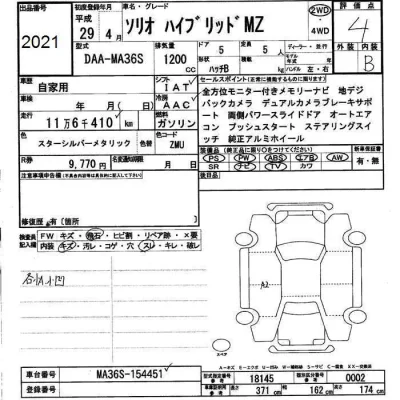 2021
初度登録年月
平成
29年 4月
車名・グレード
ソリオ ハイブリッドMZ
2WD
4WD
評価点
4
型式
DAA-MA36S
排気量
1200
CC
ドア
5
形状
ハッチB
定員
5
人
ディーラー・並行
モデル年式
ハンドル 左・右
外装 内装
B
車歴
自家用
シフト
IAT
車検
年 月
冷房
AAC
走行
11万6千410 km
燃料
ガソリン
色
スターシルバーメタリック
色替
色コード
ZMU
R券
9,770円
名変期限
月 日
セールスポイント(正常に機能するものに限る。)
全方位モニター付きメモリーナビ 地デジ
バックカメラ デュアルカメラブレーキサポ
ート 両側パワースライドドア オートエア
コン プッシュスタート ステアリングスイ
ッチ 純正アルミホイール
装備品(純正品に限り○をつけてください。)
PS PW ABS エアB AW
SR ナビ TV カワ
新車保証書
有・無
注意事項申告欄
後日品
修復歴 有 【箇所 】
検査員記入欄
FW キズ・飛石・ヒビ割・リペア跡・×要
内装 キズ・汚レ・コゲ・穴・スレ・キレ・破レ
各小キズ小凹
A2
スペア
車台番号
MA36S-154451
登録番号
型式指定番号
18145
類別区分番号
0002
長さ
371
幅
162 cm
高さ
174 cm